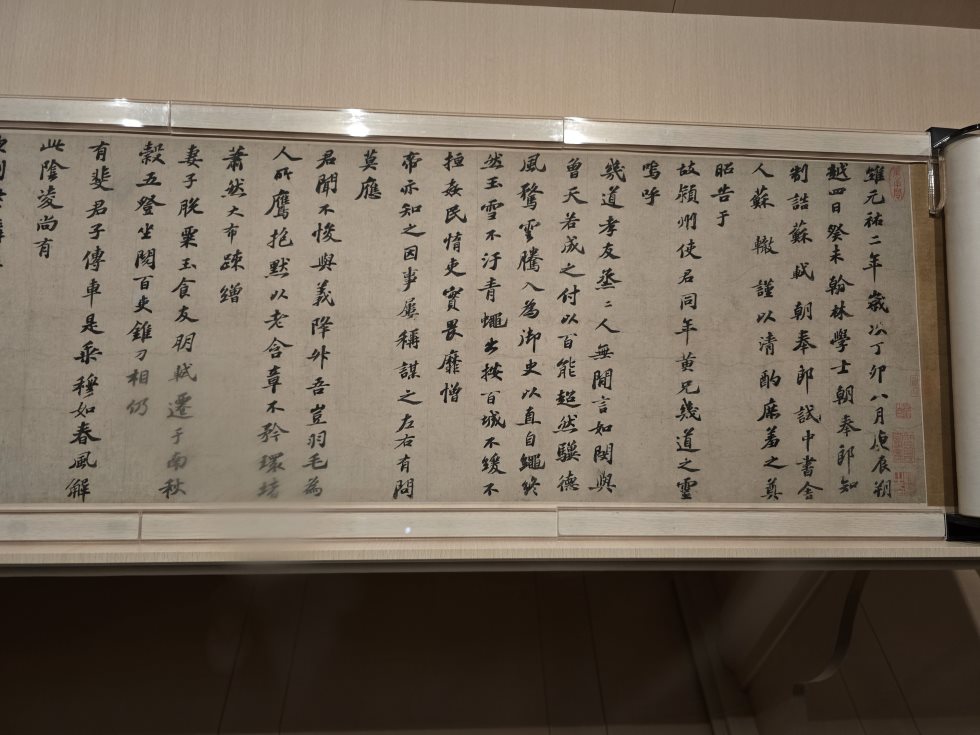 維元祐二年歲次丁卯八月庚辰朔
越四日癸未翰林學士朝奉郎知
制誥蘇軾朝奉郎試中書舍
人蘇轍謹以清酌庶羞之奠
昭告于
故潁州使君同年黃兄幾道之靈
嗚呼
幾道孝友烝二人無間言如閔與
曾天若成之付以百能超然驥德
風騖雲騰入為御史以直自繩終
然玉雪不汙青蠅出按百城不緩不
搄姦民惰吏實畏靡憎
帝亦知之因事屢稱謀之左右有問
莫應
君聞不悛與義降升吾豈羽毛為
人所鷹抱默以老含章不矜環堵
蕭然大布疎繒
妻子脫粟玉食友朋軾遷于南秋
穀五登坐閱百吏錐刀相仍
有斐君子傳車是乘穆如春風解
此陰凌尚有